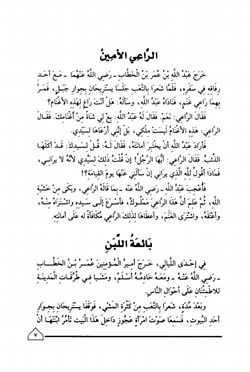 الرَّاعِي الأَمِينُ
خَرَجَ عَبْدُ اللَّهِ بْنُ عُمَرَ بْنِ الْخَطَّابِ ـ رَضِيَ اللَّهُ عَنْهُمَا ـ مَعَ أَحَدِ
رِفَاقِهِ فِي سَفَرِهِ، فَلَمَّا شَعَرَا بِالتَّعَبِ جَلَسَا يَسْتَرِيحَانِ بِجِوَارِ جَبَلٍ، فَمَرَّ
بِهِمَا رَاعِي غَنَمٍ، فَنَادَاهُ عَبْدُ اللَّهِ، وَسَأَلَهُ: هَلْ أَنْتَ رَاعٍ لِهَذِهِ الأَغْنَامِ؟
فَقَالَ الرَّاعِي: نَعَمْ. فَقَالَ لَهُ عَبْدُ اللَّهِ: بِعْ لِي شَاةً مِنْ أَغْنَامِكَ. فَقَالَ
الرَّاعِي: هَذِهِ الأَغْنَامُ لَيْسَتْ مِلْكِي، بَلْ إِنَّنِي أَرْعَاهَا لِسَيِّدِي.
فَأَرَادَ عَبْدُ اللَّهِ أَنْ يَخْتَبِرَ أَمَانَتَهُ، فَقَالَ لَهُ: قُلْ لِسَيِّدِكَ: قَدْ أَكَلَهَا
الذِّئْبُ. فَقَالَ الرَّاعِي: أَيُّهَا الرَّجُلُ! إِنْ قُلْتُ ذَلِكَ لِسَيِّدِي لأَنَّهُ لا يَرَانِي،
فَمَاذَا أَقُولُ لِلَّهِ الَّذِي يَرَانِي إِنْ سَأَلَنِي عَنْهَا يَوْمَ الْقِيَامَةِ؟!
فَأُعْجِبَ عَبْدُ اللَّهِ ـ رَضِيَ اللَّهُ عَنْهُ ـ بِمَا قَالَهُ الرَّاعِي، وَبَكَى مِنْ خَشْيَةِ
اللَّهِ، ثُمَّ عَلِمَ أَنَّ هَذَا الرَّاعِيَ مَمْلُوكٌ، فَأَسْرَعَ إِلَى سَيِّدِهِ وَاشْتَرَاهُ مِنْهُ،
وَأَعْتَقَهُ، وَاشْتَرَى الْغَنَمَ، وَأَعْطَاهَا لِذَلِكَ الرَّاعِي مُكَافَأَةً لَهُ عَلَى أَمَانَتِهِ.
بَائِعَةُ اللَّبَنِ
فِي إِحْدَى اللَّيَالِي، خَرَجَ أَمِيرُ الْمُؤْمِنِينَ عُمَرُ بْنُ الْخَطَّابِ
ـ رَضِيَ اللَّهُ عَنْهُ ـ وَمَعَهُ خَادِمُهُ أَسْلَمُ، وَمَشَيَا فِي طُرُقَاتِ الْمَدِينَةِ
لِلاطْمِئْنَانِ عَلَى أَحْوَالِ النَّاسِ.
وَبَعْدَ مُدَّةٍ، شَعَرَا بِالتَّعَبِ مِنْ كَثْرَةِ الْمَشْيِ، فَوَقَفَا يَسْتَرِيحَانِ بِجِوَارِ
أَحَدِ الْبُيُوتِ، فَسَمِعَا صَوْتَ امْرَأَةٍ عَجُوزٍ دَاخِلَ هَذَا الْبَيْتِ تَأْمُرُ ابْنَتَهَا أَنْ
٧